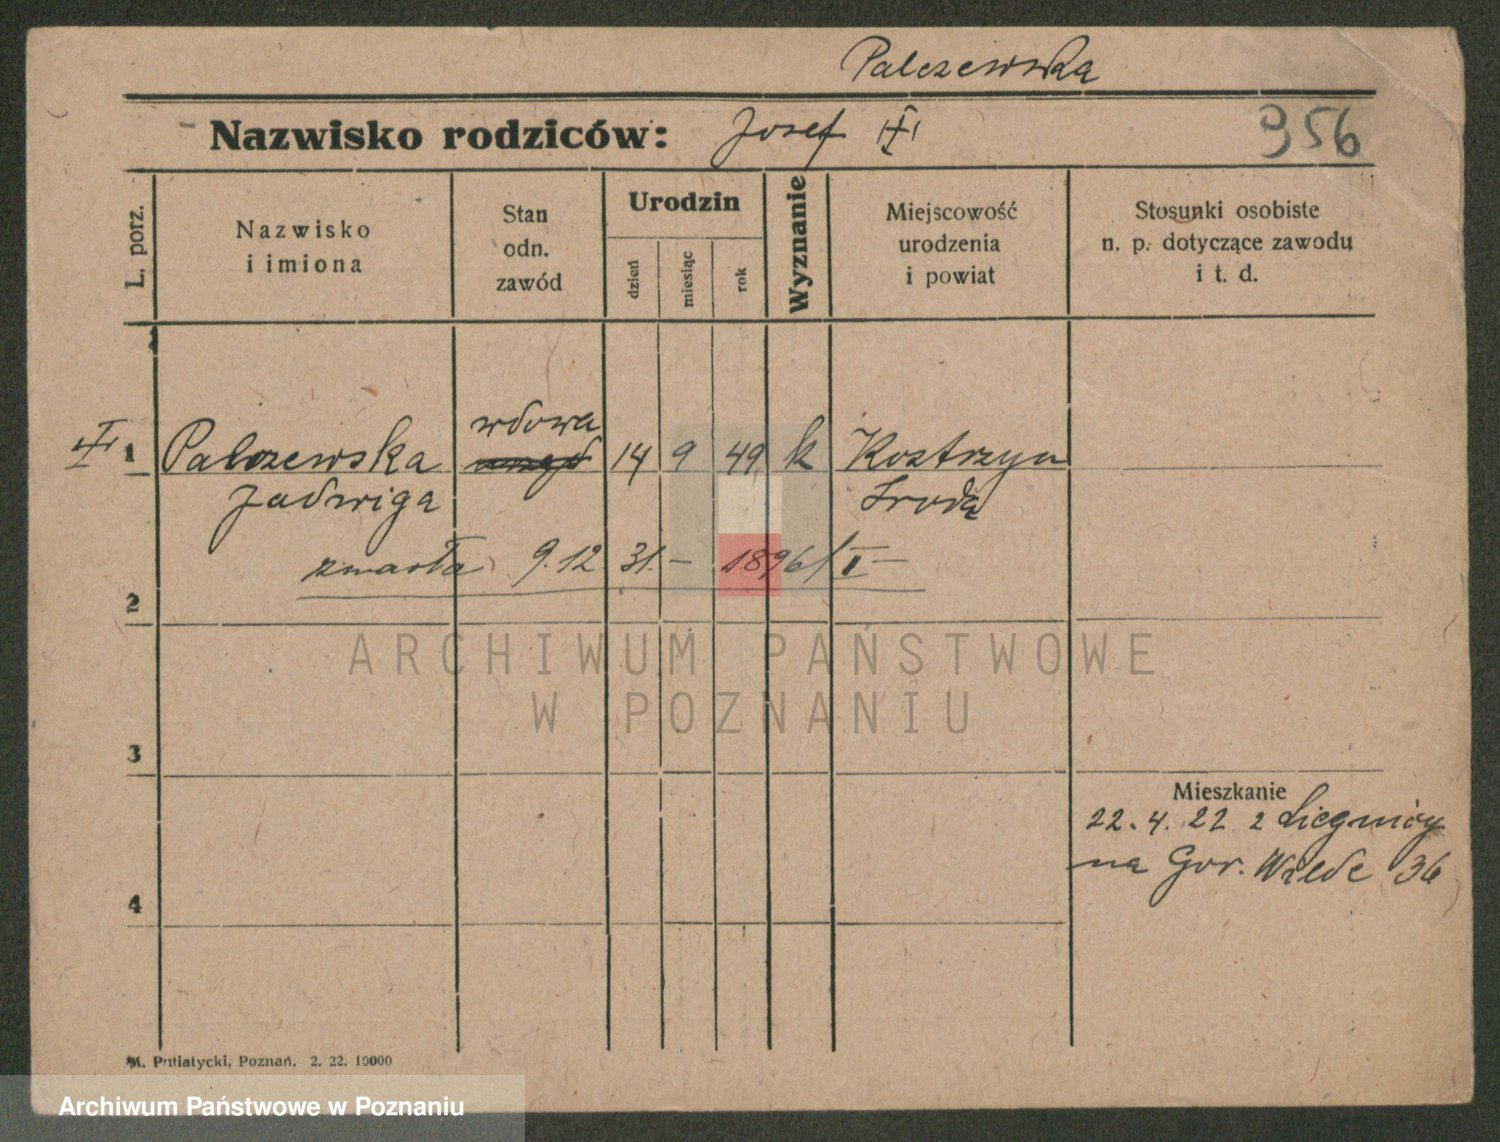 Palczewska
Nazwisko rodziców: Josef
956
L. porz.
Nazwisko
i imiona
Stan
odn.
zawód
Urodzin
dzień
miesiąc
rok
Wyznanie
Miejscowość
urodzenia
i powiat
Stosunki osobiste
n. p. dotyczące zawodu
i t. d.
wdowa
1 Palczewska 14 9 49 k Kostrzyn
Jadwiga Środa
zmarła 9.12 31. – 1896/I –
2
ARCHIWUM PAŃSTWOWE
W POZNANIU
3
Mieszkanie
22. 4. 22 z Liegnicy
na Gor. Wilde 36
4
M. Putiatycki, Poznań. 2. 22. 10000
Archiwum Państwowe w Poznaniu